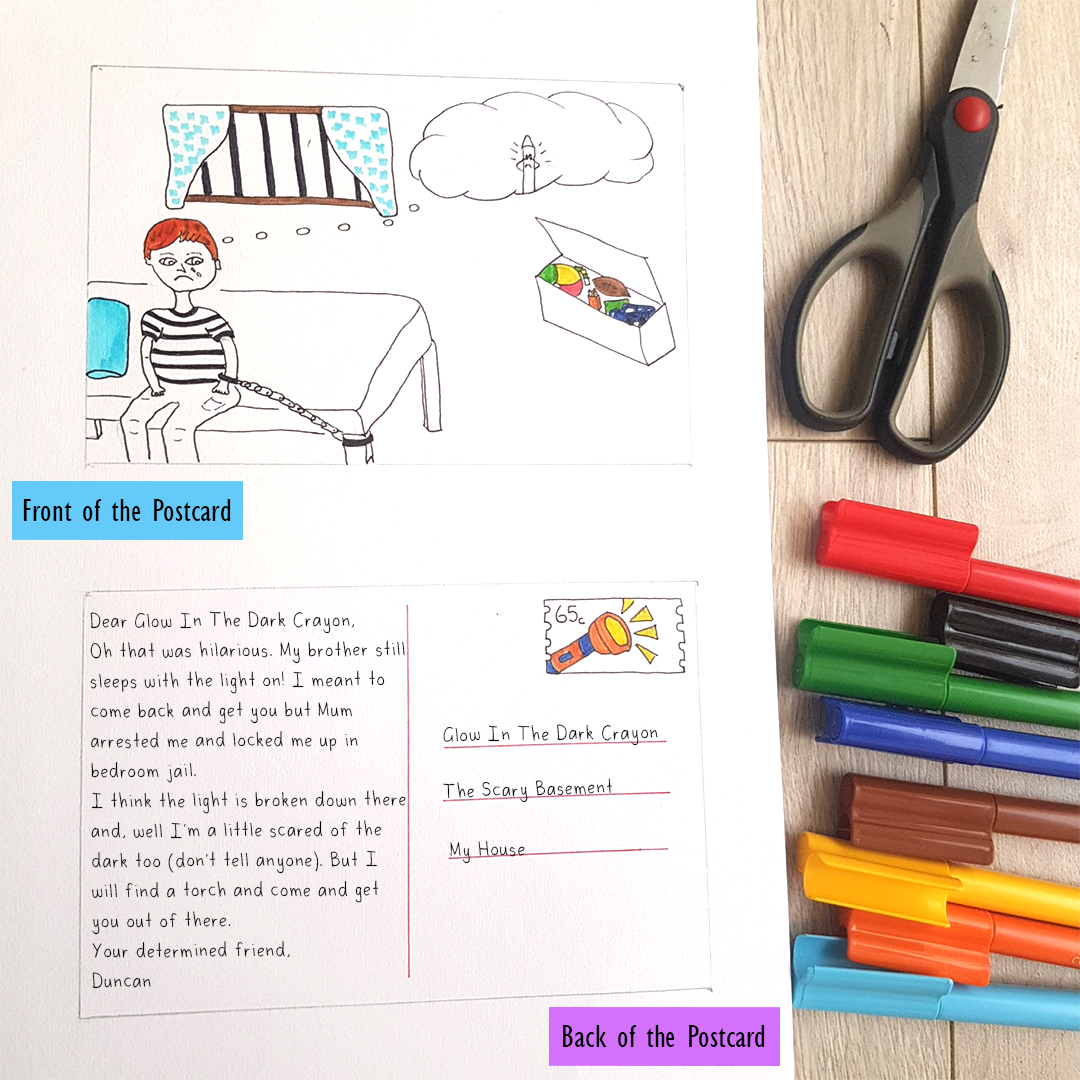 Front of the Postcard
Dear Glow In The Dark Crayon,
Oh that was hilarious. My brother still
sleeps with the light on! I meant to
come back and get you but Mum
arrested me and locked me up in
bedroom jail.
I think the light is broken down there
and, well I'm a little scared of the
dark too (don't tell anyone). But I
will find a torch and come and get
you out of there.
Your determined friend,
Duncan
65c
Glow In The Dark Crayon
The Scary Basement
My House
Back of the Postcard